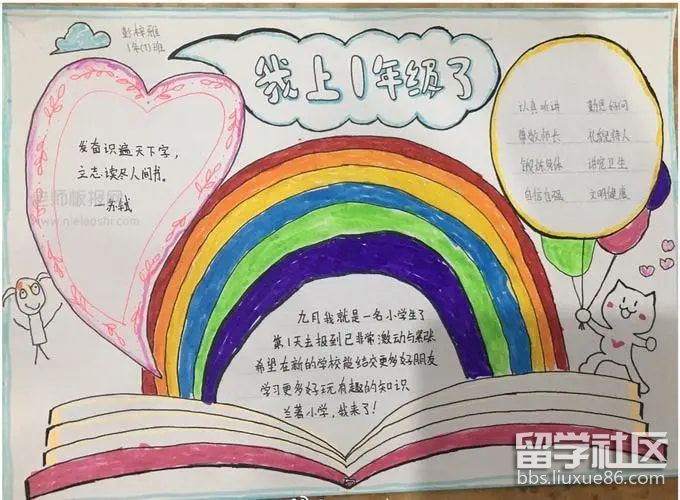 彭梓雅
1年(1)班
我上1年级了
发奋识遍天下字,
立志读尽人间书。
—苏轼
老师板报网
www.nielaoshi.com
认真听讲 勤思好问
尊敬师长 礼貌待人
锻炼身体 讲究卫生
自信自强 文明健康
九月我就是一名小学生了
第1天去报到已非常激动与紧张
希望在新的学校能结交更多好朋友
学习更多好玩有趣的知识
兰著小学,我来了!
留学社区
bbs.liuxue86.com